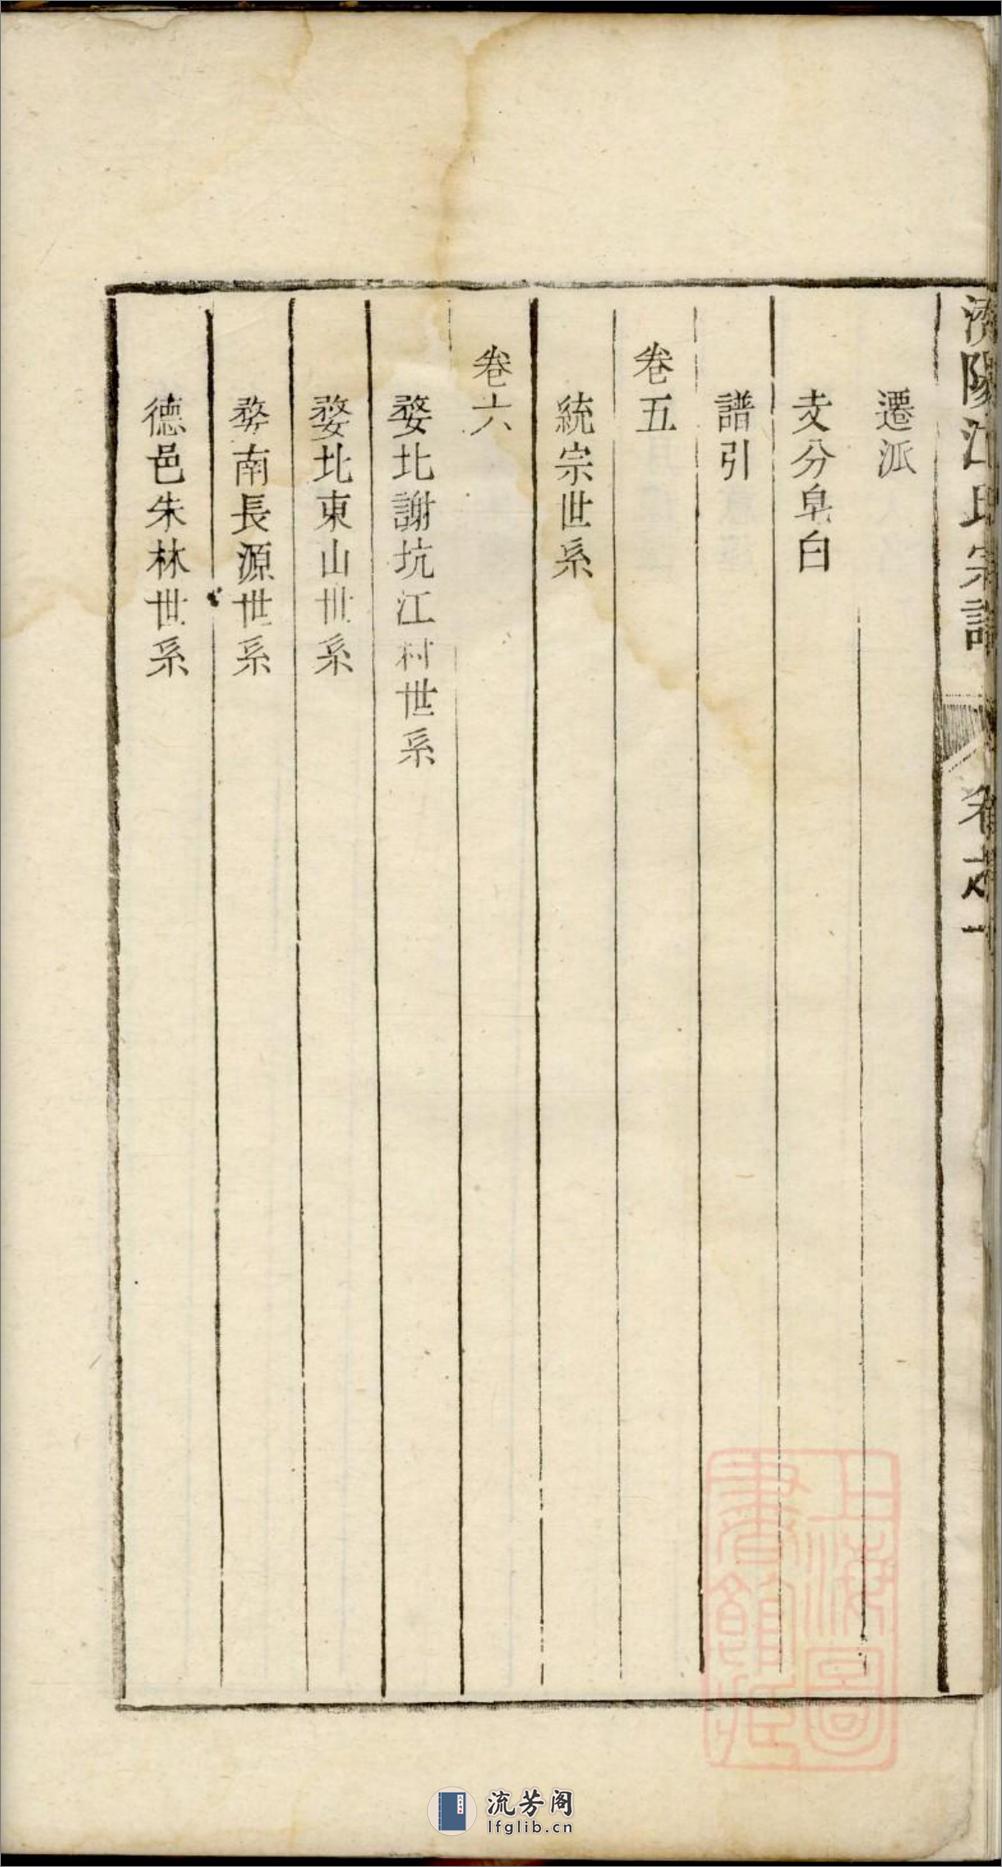 濟陽江氏宗譜 卷之一
遷派
支分皁白
譜引
卷五
統宗世系
卷六
婺北謝坑江村世系
婺北東山世系
婺南長源世系
德邑朱林世系
上海圖書館藏
流芳阁
lfglib.cn